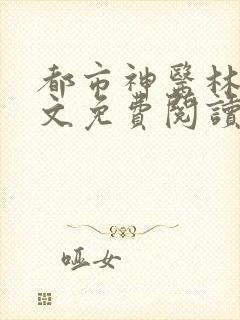 都市神醫林
文免費閱讀
哑女